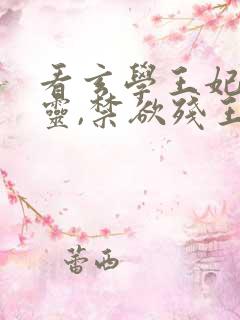 看玄學王妃
靈,禁欲殘王
蕾西